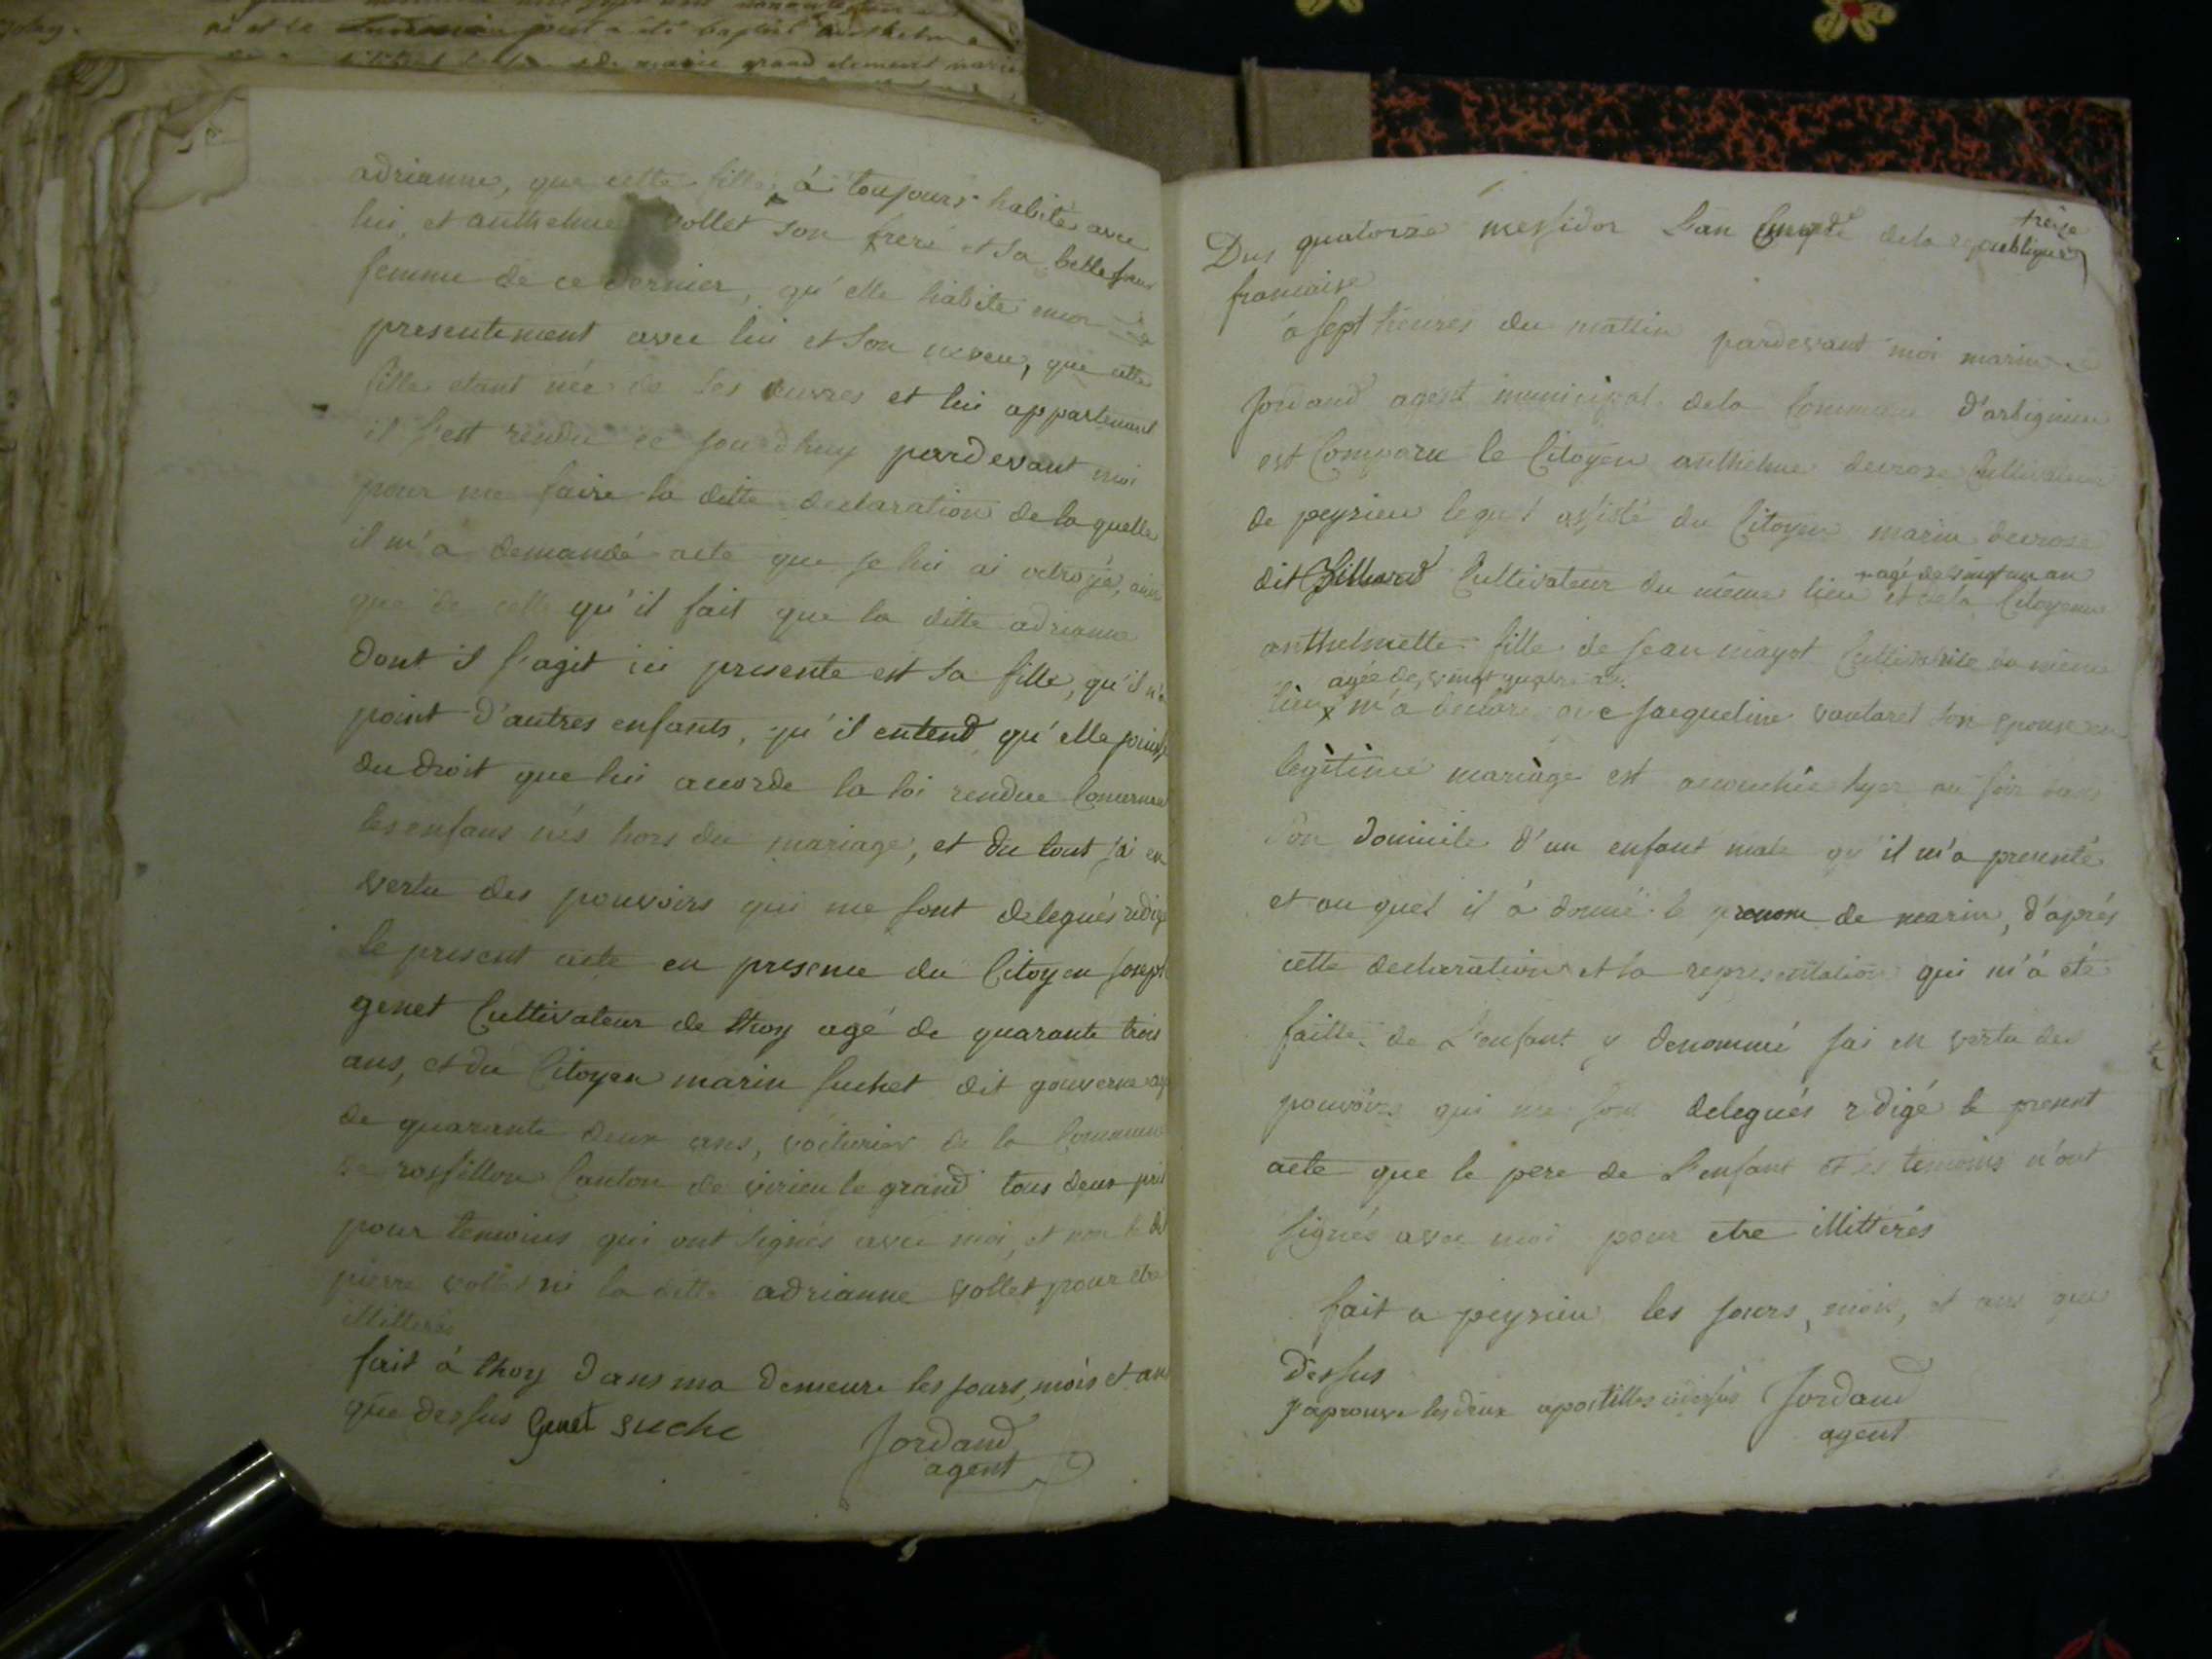 adrianne, que cette fille à toujours habité avec
lui, et anthelme vollet son frere et sa belle soeur
femme de ce dernier, qu'elle habite encor
presentement avec lui et son neveu, que cette
fille etant née de ses œuvres et lui appartenant
il s'est rendu ce jourdhuy pardevant moi
pour me faire la ditte declaration de la quelle
il m'a demandé acte que je lui ai octroyé, ainsi
que de celle qu'il fait que la ditte adrianne
dont il s'agit ici presente est sa fille, qu'il n'a
point d'autres enfants, qu'il entend qu'elle jouisse
du droit que lui accorde la loi rendue Concernant
les enfans nés hors du mariage, et du tout j'ai en
vertu des pouvoirs qui me sont delegués redigé
le present acte en presence du Citoyen joseph
genet Cultivateur de thoy agé de quarante trois
ans, et du Citoyen marin suchet dit gouverne agé
de quarante deux ans, voiturier de la Commune
de rossillon Canton de virieu le grand tous deux pris
pour temoins qui ont signés avec moi, et non le dit
pierre vollet ni la ditte adrianne vollet pour etre
illitterés
fait à thoy dans ma demeure les jours, mois et an
que dessus Genet suche Jordand
agent
Du quatorze messidor L'an de la republique
treize
francaise
à sept heures du mattin pardevant moi marin
Jordand agent municipal de la Commune d'arbignieu
est Comparu le Citoyen anthelme decroze Cultivateur
de peyzieu lequel assisté du Citoyen marin decroze
agé de vingt un an
dit Cultivateur du même lieu et de la Citoyenne
anthelmette fille de jean mayot Cultivatrice du même
agée de vingt quatre ans
lieu m'a declaré que jacqueline vautaret son epouse en
legitime mariage est accouchée hyer au soir dans
son domicile d'un enfant male qu'il m'a presenté
et au quel il à donné le prenom de marin, d'aprés
cette declaration et la representation qui m'à eté
faitte de L'enfant y denommé j'ai en vertu des
pouvoirs qui me sont delegués rdigé le present
acte que le pere de L'enfant et les temoins n'ont
signés avec moi pour etre illitterés
fait a peyzieu les jours, mois, et ans que
dessus
j'aprouve les deux apostilles cidessus Jordand
agent